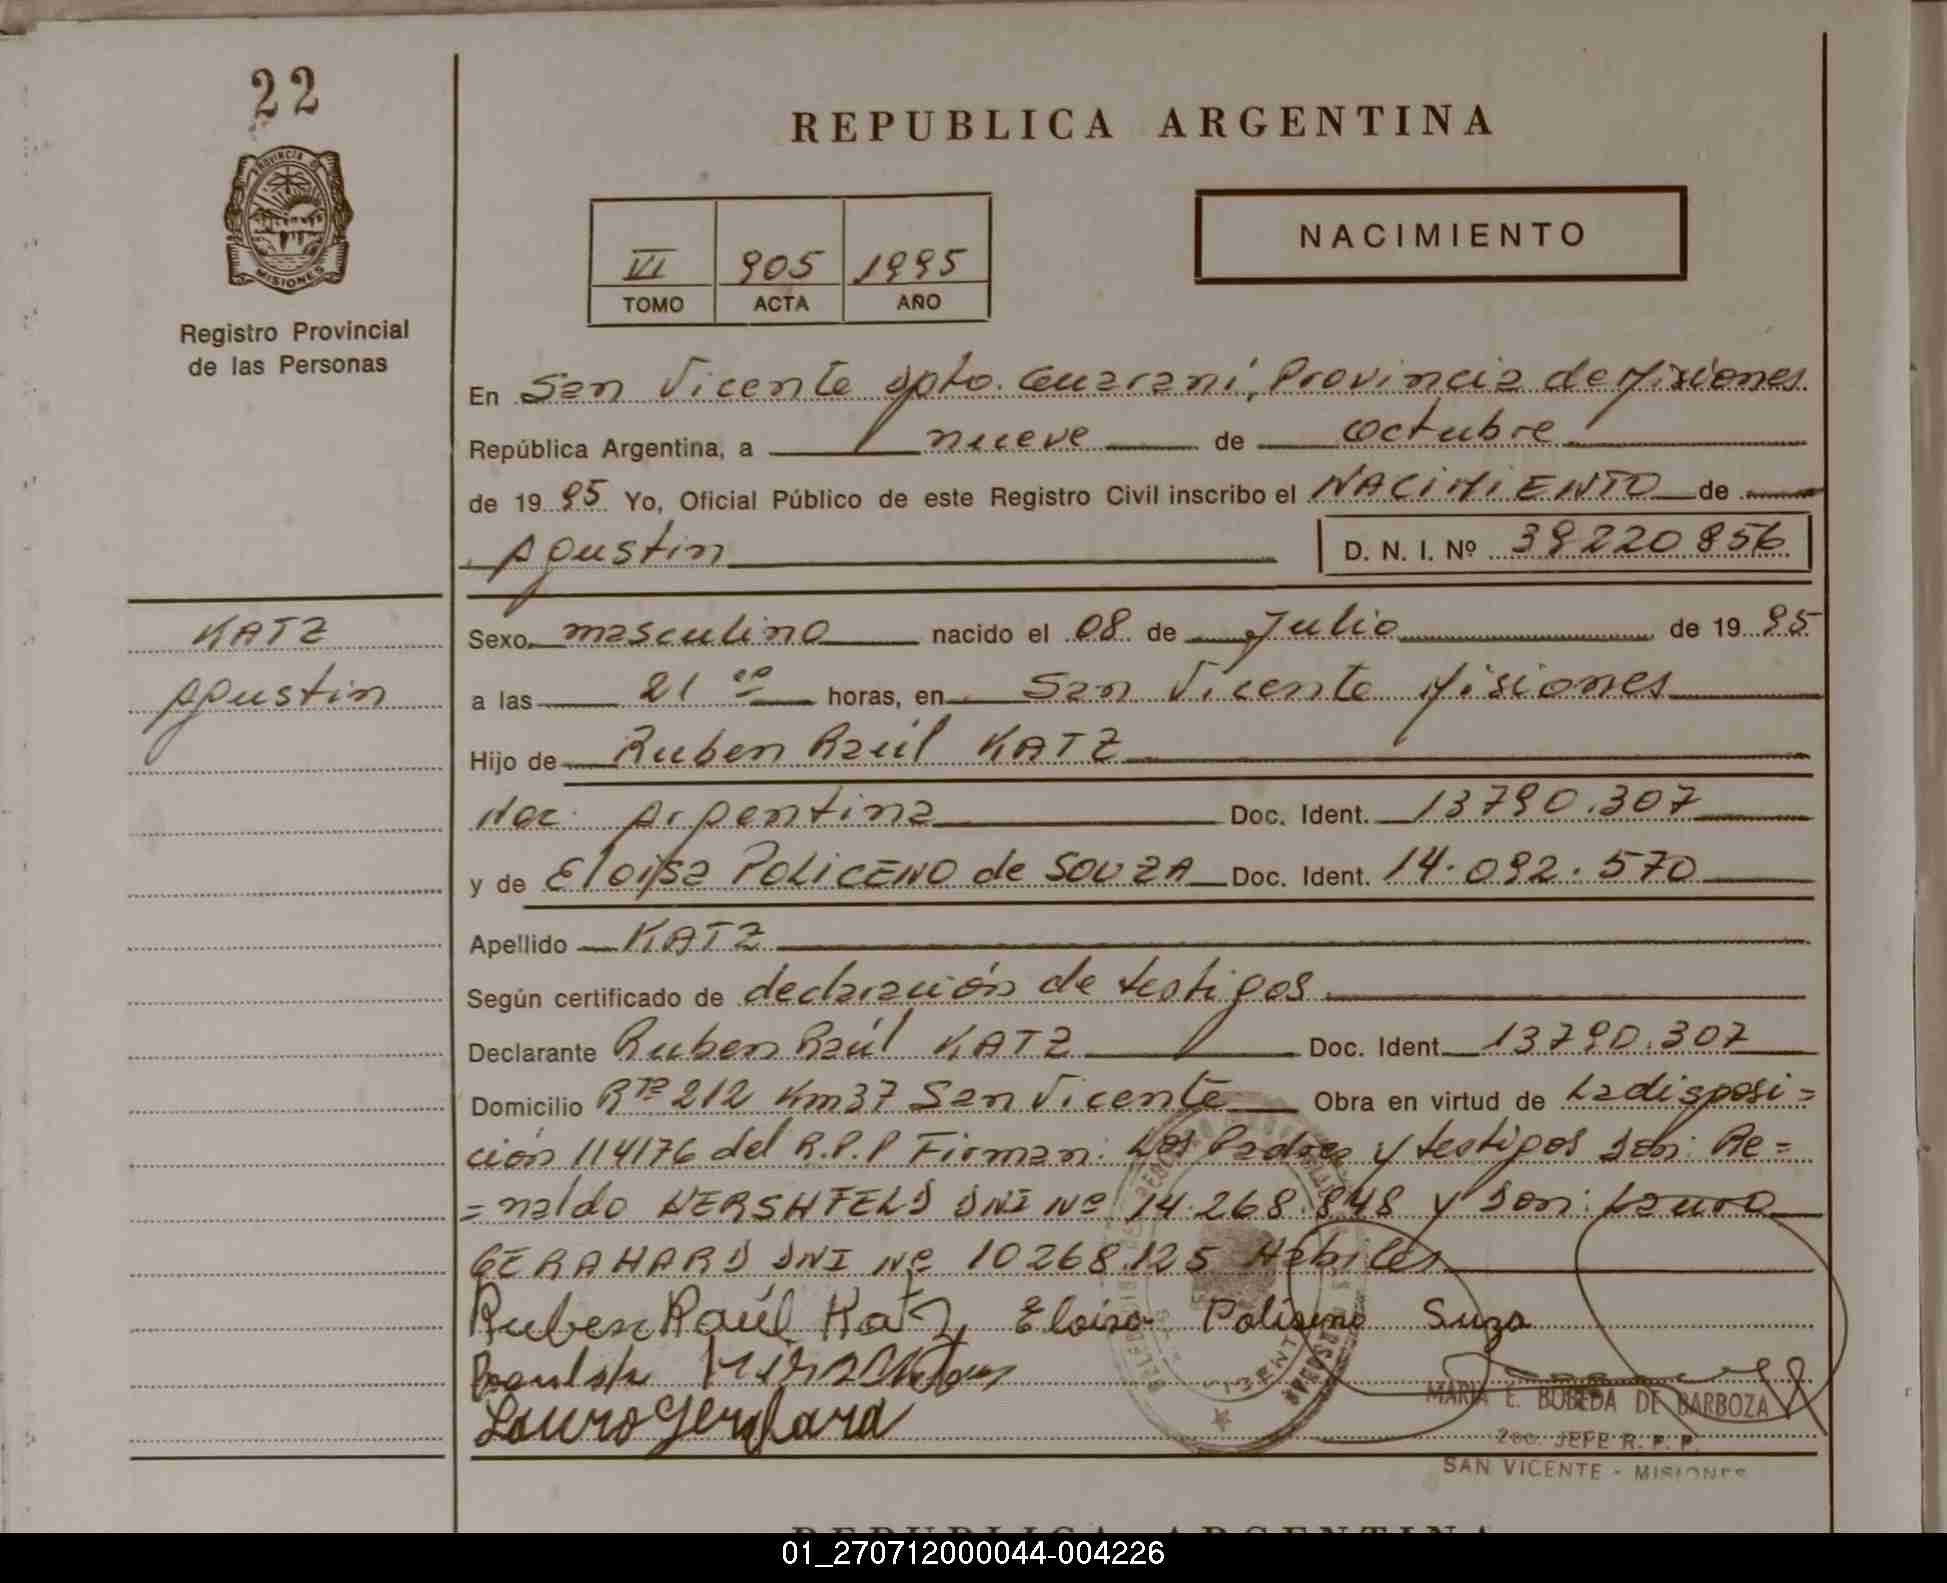 22
REPUBLICA ARGENTINA
PROVINCIA DE
MISIONES
NACIMIENTO
VI 905 1995
TOMO ACTA AÑO
Registro Provincial
de las Personas
En San Vicente Dpto. Guaraní, Provincia de Misiones
República Argentina, a nueve de octubre
de 1995 Yo, Oficial Público de este Registro Civil inscribo el NACIMIENTO de
Agustin D. N. I. Nº 39220856
KATZ
Agustin
Sexo masculino nacido el 08 de Julio de 1995
a las 21 00 horas, en San Vicente Misiones
Hijo de Ruben Raúl KATZ
Nac. Argentina Doc. Ident. 13790.307
y de Eloisa POLICENO de SOUZA Doc. Ident. 14.092.570
Apellido KATZ
Según certificado de declaración de testigos
Declarante Ruben Raúl KATZ Doc. Ident. 13790.307
Domicilio Rta 212 Km37 San Vicente Obra en virtud de La disposi=
ción 114176 del R.P.P Firman: Los Padres y testigos son: Re=
=naldo HERSHFELD DNI Nº 14.268.848 y Don: Lauro
GERAHARD DNI Nº 10268.125 Habiles
Ruben Raúl Katz Eloisa Poliseno Suza
Lauro Gerahara
MARIA E. BOBEDA DE BARBOZA
2do. JEFE R. P. P.
SAN VICENTE - MISIONES
REPUBLICA ARGENTINA
01_270712000044-004226